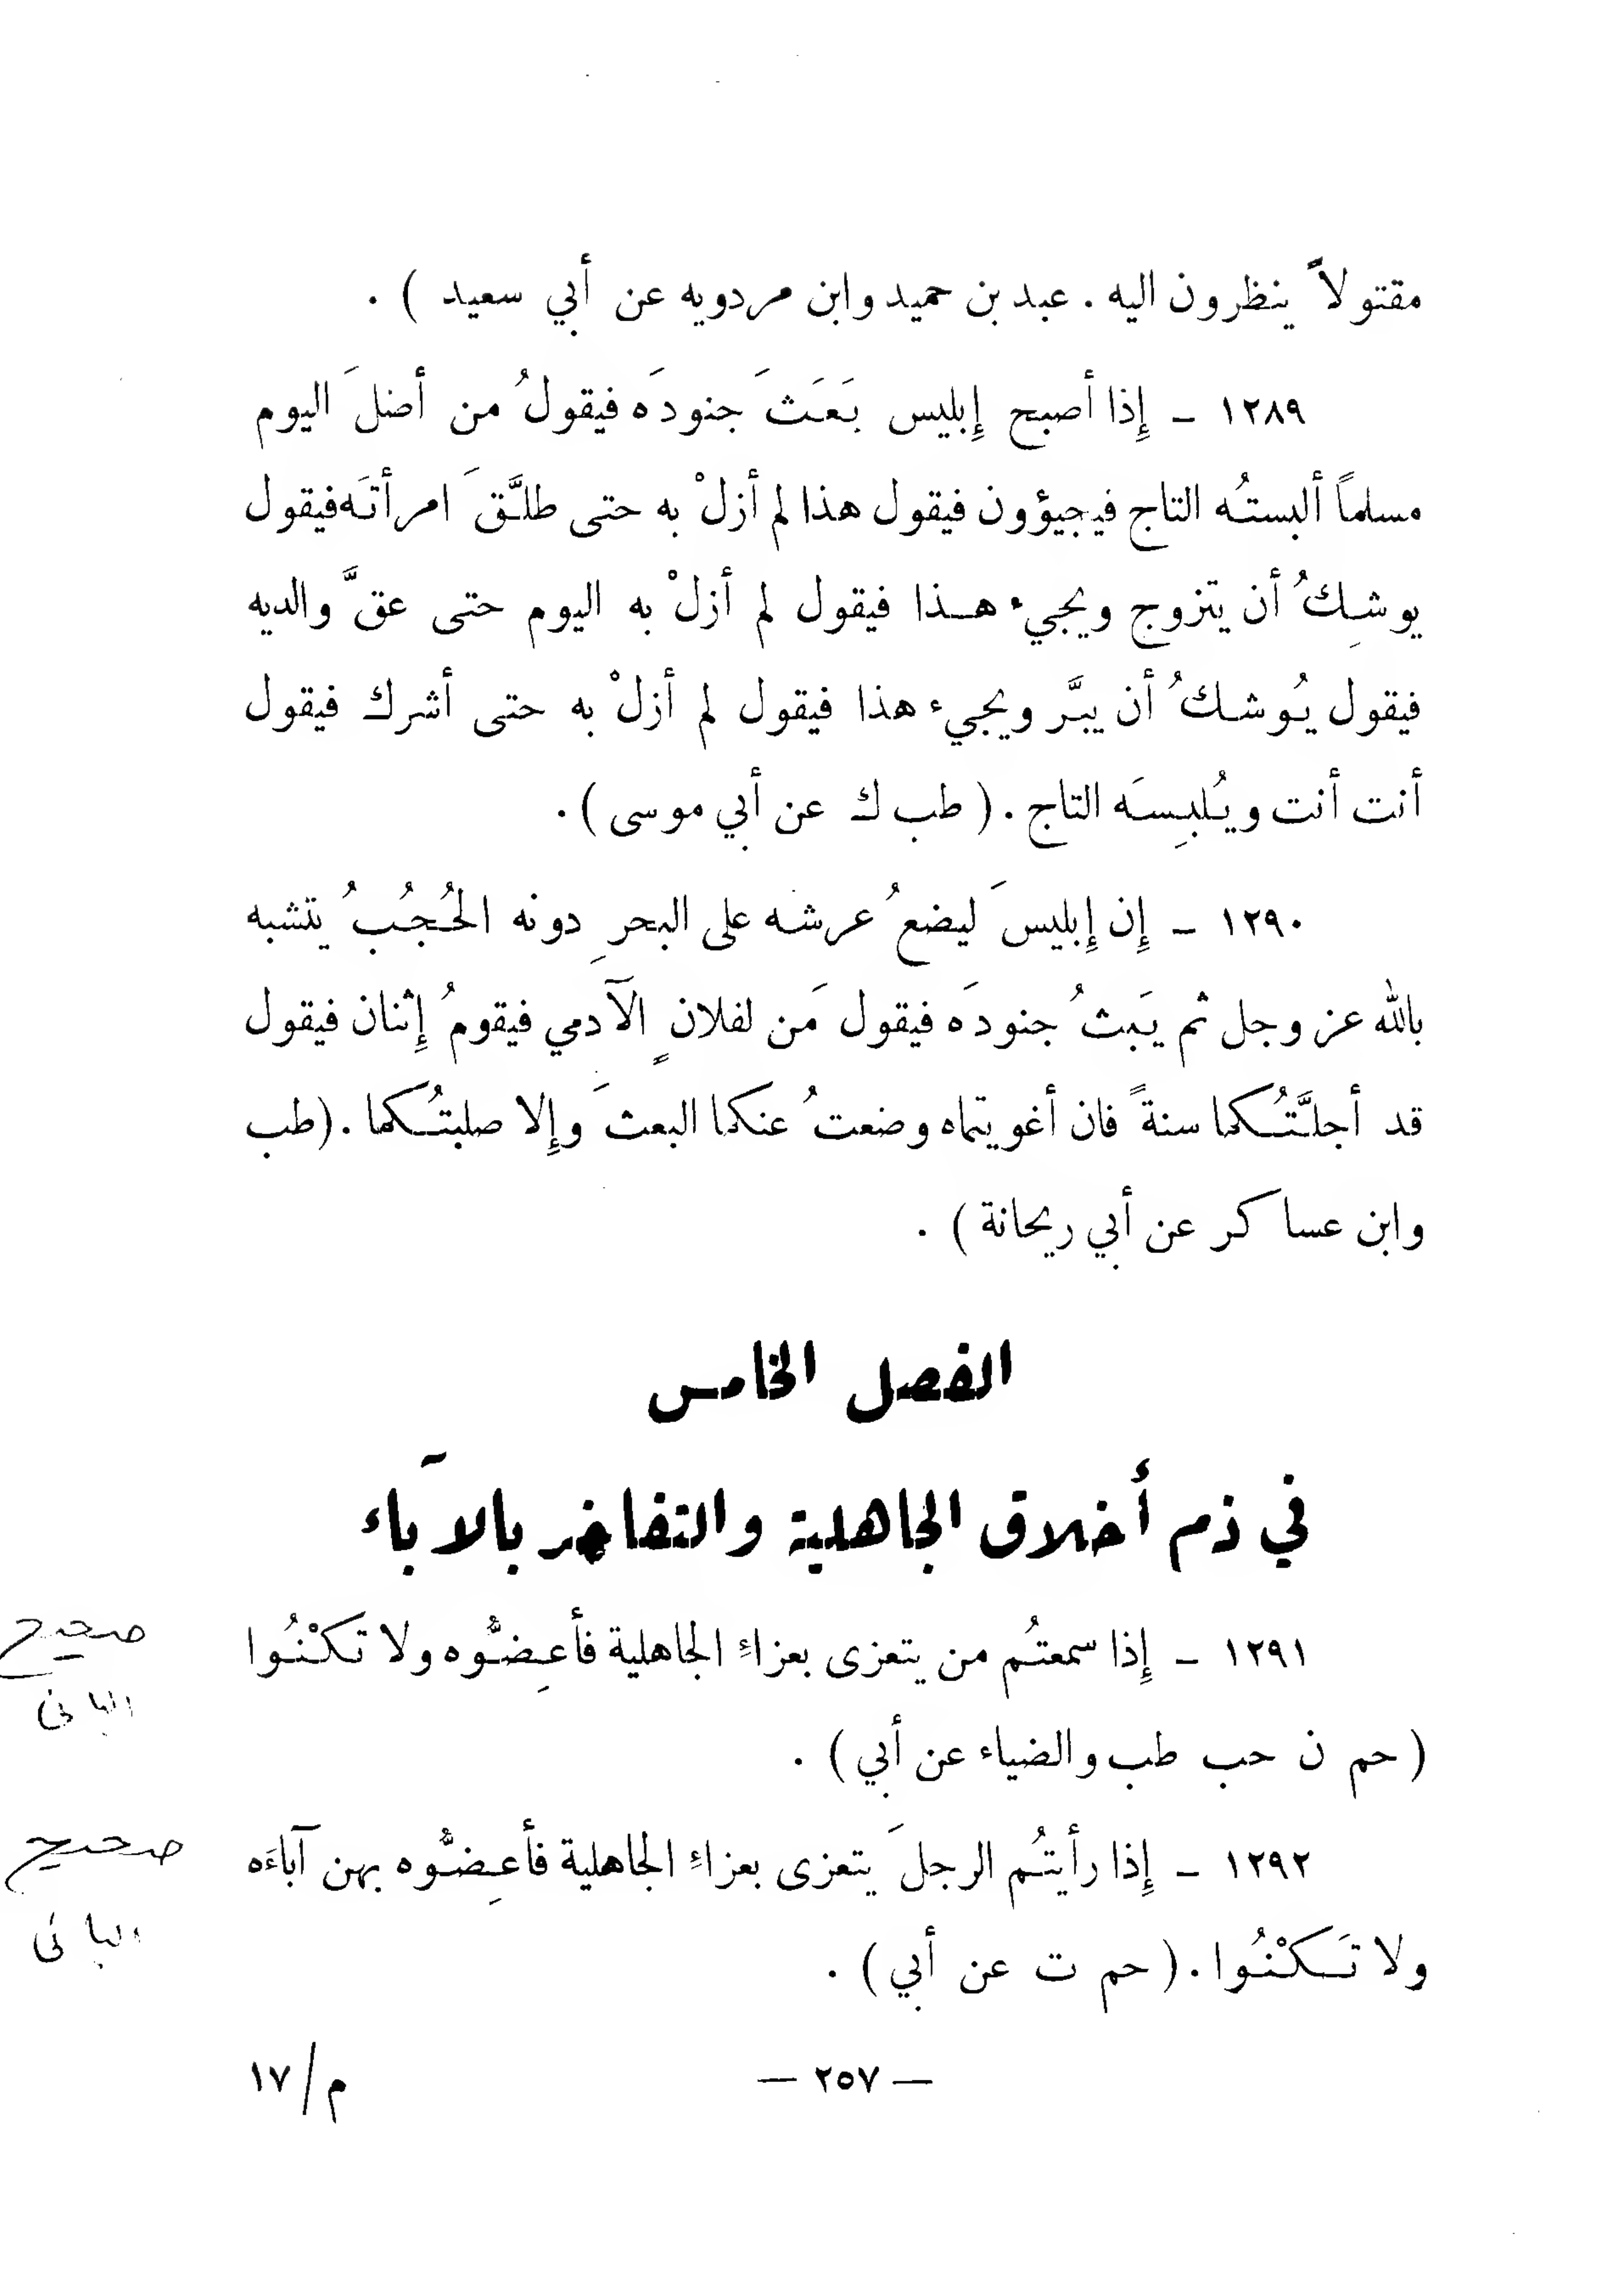 مقتولاً ينظرون اليه . عبد بن حميد وابن مردويه عن أبي سعيد ) .
١٢٨٩ - إِذا أصبح إِبليس بَعَثَ جنودَه فيقولُ من أضلَ اليوم
مسلماً ألبستُه التاج فيجيؤون فيقول هذا لم أزلْ به حتى طلَّقَ امرأتَه فيقول
يوشِكُ أن يتزوج ويجيء هـذا فيقول لم أزلْ به اليوم حتى عقَّ والديه
فيقول يُوشكُ أن يبرَّ ويجيء هذا فيقول لم أزلْ به حتى أشرك فيقول
أنت أنت ويُلبِسَه التاج . ( طب ك عن أبي موسى ) .
١٢٩٠ - إِن إِبليسَ ليضعُ عرشه على البحرِ دونه الحُجُبُ يتشبه
بالله عز وجل ثم يَبثُ جنودَه فيقول مَن لفلانٍ الآدمي فيقومُ إِثنان فيقول
قد أجلَّتُكما سنةً فان أغويتماه وضعتُ عنكما البعثَ وإِلا صلبتُكما . (طب
وابن عساكر عن أبي ريحانة ) .
الفصل الخامس
في ذم أخلاق الجاهلية والتفاخر بالآباء
١٢٩١ - إِذا سمعتُم من يتعزى بعزاءِ الجاهلية فأعِضُّوه ولا تكْنُوا
صحيح
البانى
( حم ن حب طب والضياء عن أبي ) .
١٢٩٢ - إِذا رأيتُم الرجلَ يتعزى بعزاءِ الجاهلية فأعِضُّوه بهن آباءَه
صحيح
البانى
ولا تَكْنُوا . ( حم ت عن أبي ) .
— ٢٥٧ —
م/١٧